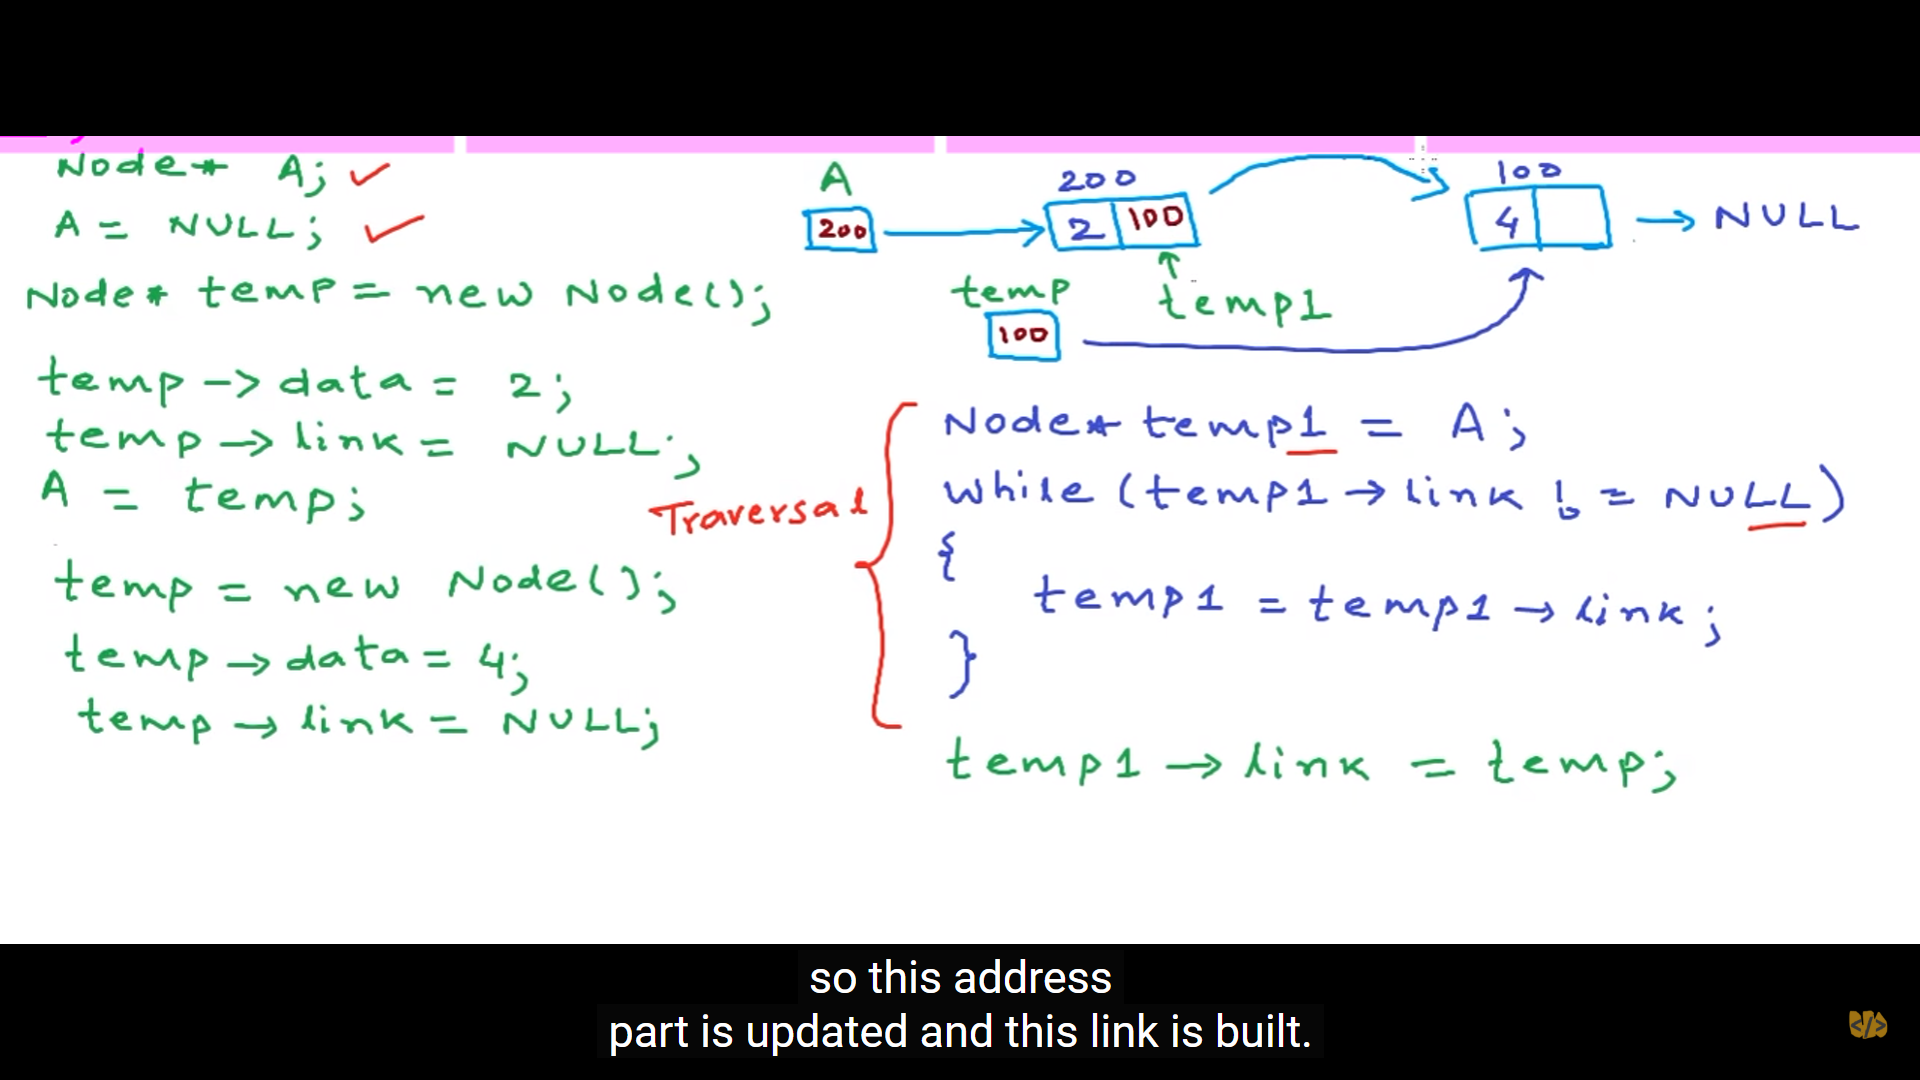 Node* A;
A = NULL;
Node* temp = new Node();
temp -> data = 2;
temp -> link = NULL;
A = temp;
temp = new Node();
temp -> data = 4;
temp -> link = NULL;
A
200
200
2 100
100
4
→ NULL
temp
100
temp1
Traversal
Node* temp1 = A;
while (temp1 → link != NULL)
{
temp1 = temp1 → link;
}
temp1 → link = temp;
so this address
part is updated and this link is built.